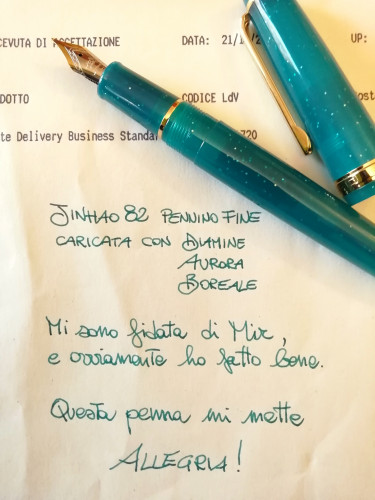 CEVUTA DI ACCETTAZIONE DATA: 21/1 UP:
DOTTO CODICE LdV
te Delivery Business Standa 720
JINHAO 82 PENNINO FINE
CARICATA CON DIAMINE
AURORA
BOREALE
Mi sono fidata di Mir,
e ovviamente ho fatto bene.
Questa penna mi mette
ALLEGRIA!